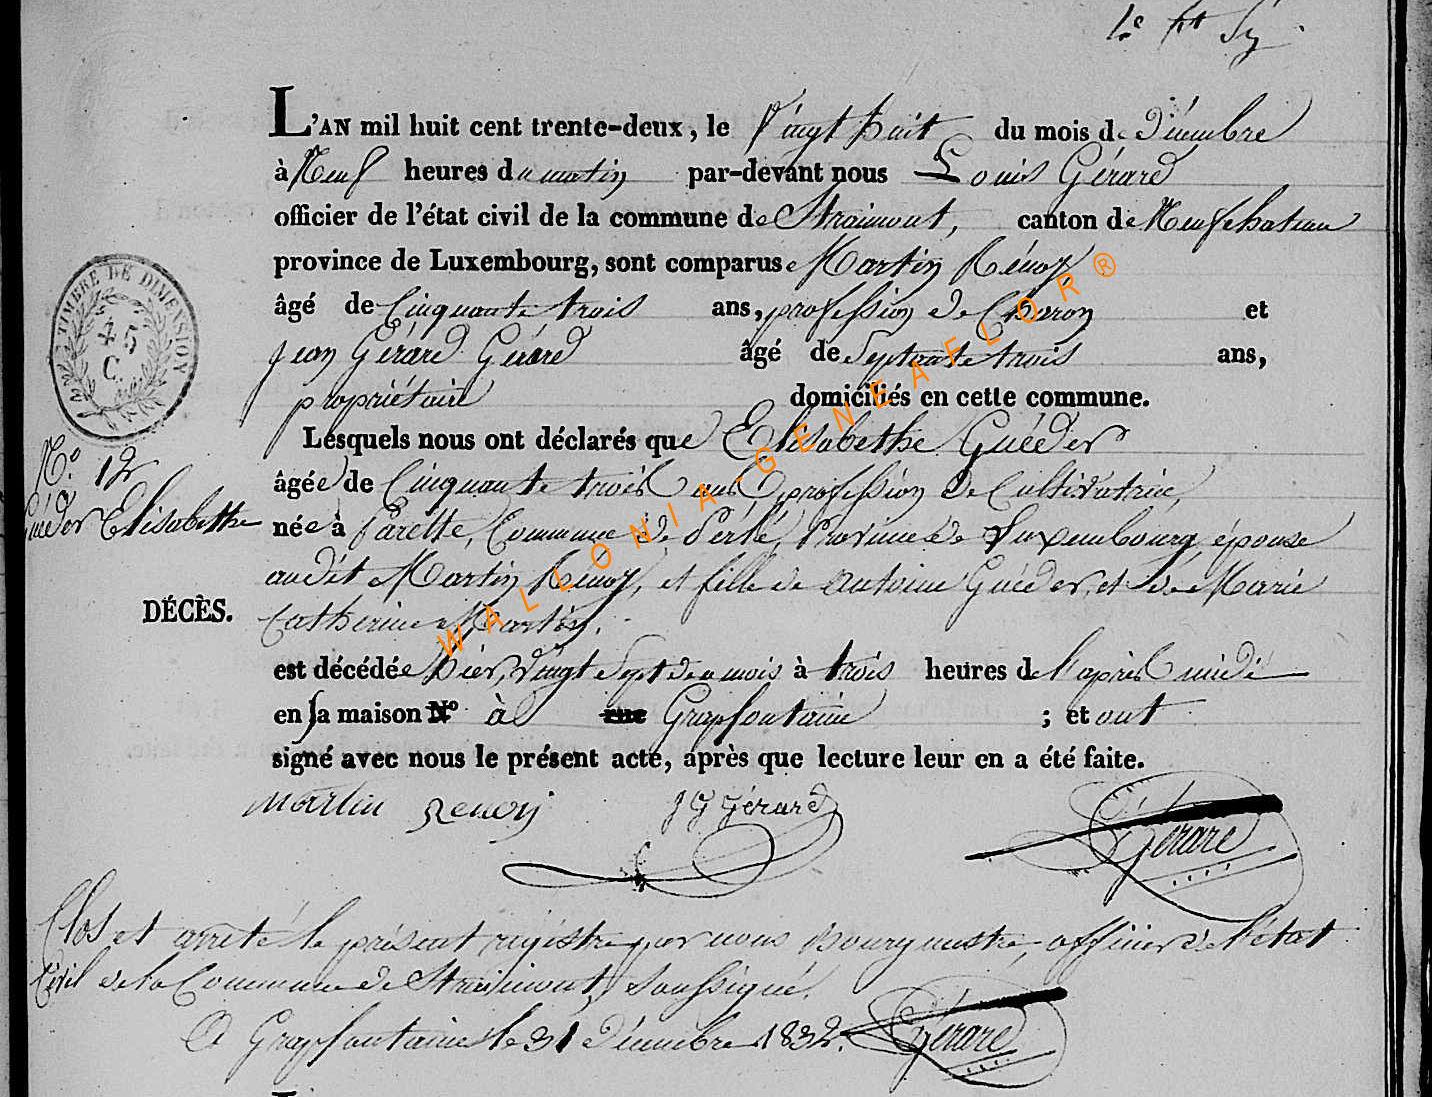 L'AN mil huit cent trente-deux, le Vingt huit du mois de Décembre
à Neuf heures du matin par-devant nous Louis Gérard
officier de l'état civil de la commune de Straimont, canton de Neufchateau
province de Luxembourg, sont comparus Martin Renoy
âgé de Cinquante trois ans, profession de Charon et
Jean Gérard Gérard âgé de Septante trois ans,
propriétaire domiciliés en cette commune.
Lesquels nous ont déclarés que Elisabethe Guéder
âgée de Cinquante trois ans, profession de Cultivatrice,
née à Parette, Commune de Perlé, Province de Luxembourg, épouse
audit Martin Renoy, et fille de Antoine Guéder, et de Marie
Catherine
est décédée hier, vingt Sept de mois à trois heures de l'après midi
en sa maison N° à rue Grapfontaine ; et ont
signé avec nous le présent acte, après que lecture leur en a été faite.
TIMBRE DE DIMENSION
45
C.
N°. 12
Guéder Elisabethe
DÉCÈS.
martin Renoij JG Gérard Gérard
Clos et arrêté le présent registre par nous Bourgmestre, officier de l'état
Civil de la Commune de Straimont, Soussigné.
A Grapfontaine le 31 Décembre 1832. Gérard
WALLONIA-GENEAFLOR®